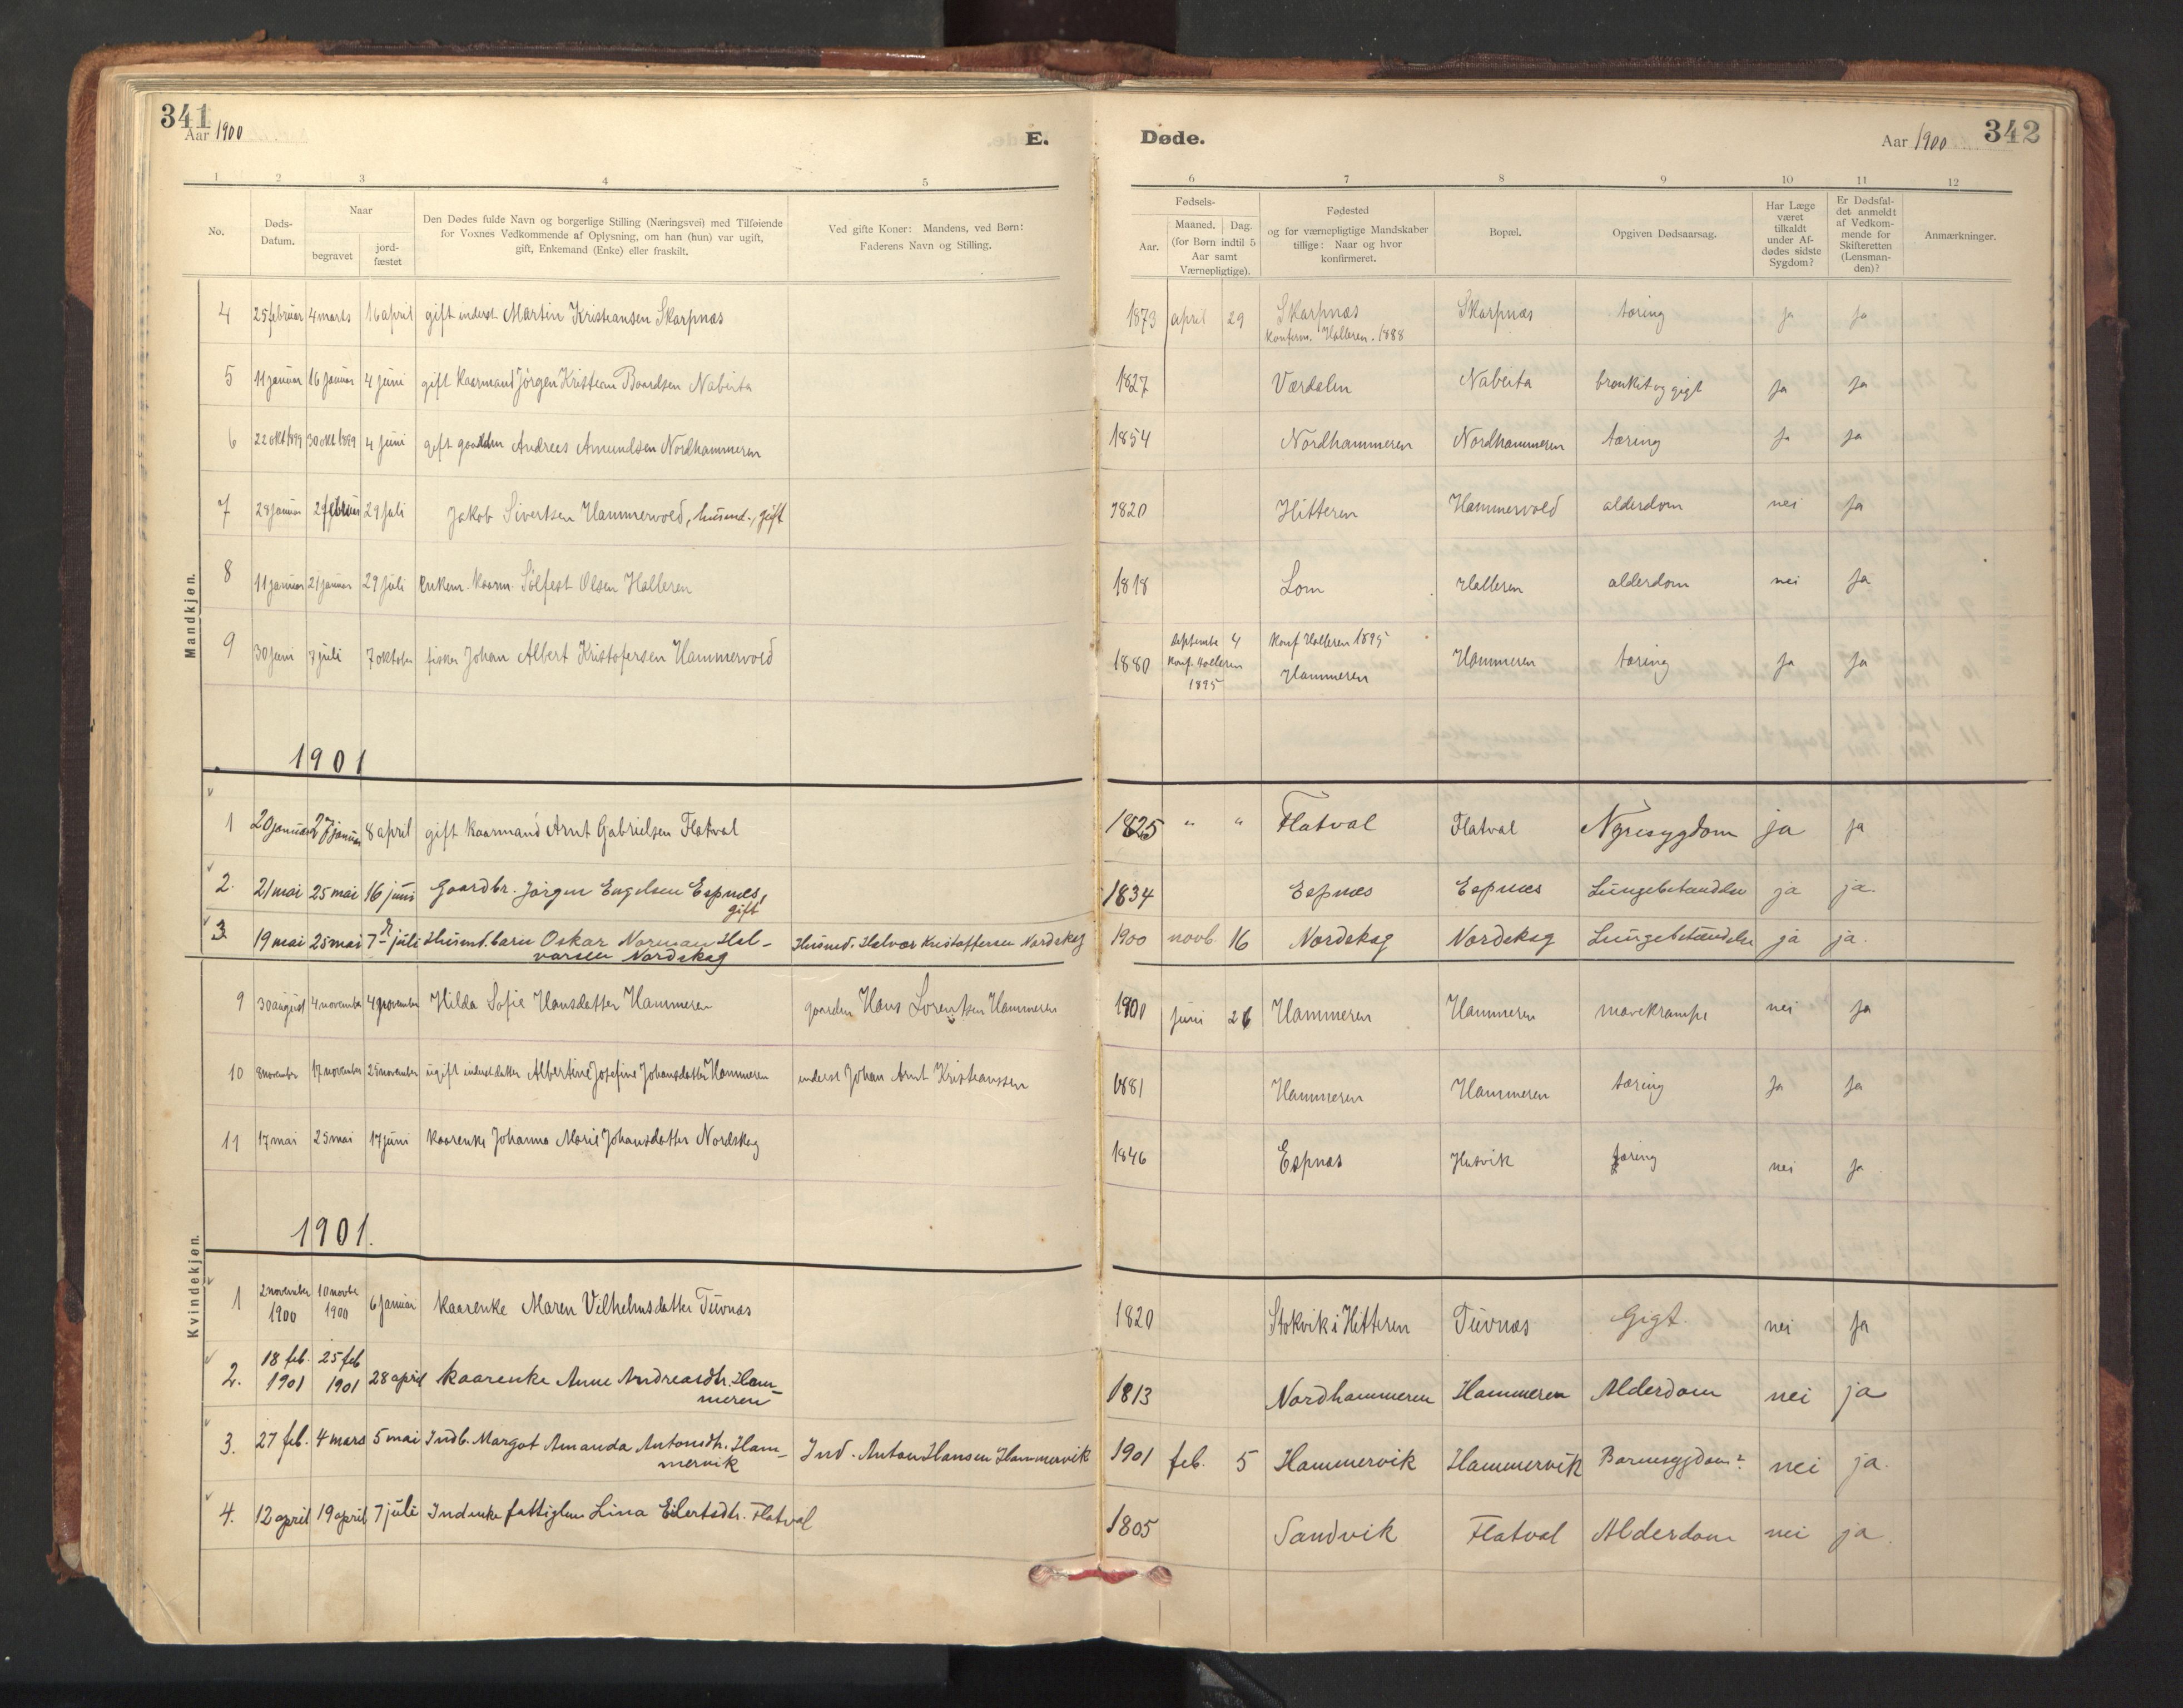 341
Aar 1900
E.
Døde.
Aar 1900
342
1 2 3 4 5
6 7 8 9 10 11 12
No.
Døds-
Datum.
Naar
begravet
jord-
fæstet
Den Dødes fulde Navn og borgerlige Stilling (Næringsvei) med Tilføiende
for Voxnes Vedkommende af Oplysning, om han (hun) var ugift,
gift, Enkemand (Enke) eller fraskilt.
Ved gifte Koner: Mandens, ved Børn:
Faderens Navn og Stilling.
Fødsels-
Aar.
Maaned. Dag.
(for Børn indtil 5
Aar samt
Værnepligtige).
Fødested
og for værnepligtige Mandskaber
tillige: Naar og hvor
konfirmeret.
Bopæl.
Opgiven Dødsaarsag.
Har Læge
været
tilkaldt
under Af-
dødes sidste
Sygdom?
Er Dødsfal-
det anmeldt
af Vedkom-
mende for
Skifteretten
(Lensman-
den)?
Anmærkninger.
Mandkjøn.
4 25 februar 4 marts 16 april gift inderst Martin Kristiansen Skarpnæs 1873 april 29 Skarpnæs Skarpnæs tæring ja ja
konferm. Halleren. 1888
5 11 januar 16 januar 4 juni gift kaarmand Jörgen Kristian Baardsen Nabeita 1827 Værdalen Nabeita bronkit og gigt ja ja
6 22 okt 1899 30 okt 1899 4 juni gift Andreas Amundsen Nordhammeren 1854 Nordhammeren Nordhammeren tæring ja ja
7 28 januar 2 februar 29 juli Jakob Sivertsen Hammervold, husmd., gift 1820 Hitteren Hammervold alderdom nei ja
8 11 januar 21 januar 29 juli enkem. kaarm. Sölfest Olsen Halleren 1818 Lom Halleren alderdom nei ja
9 30 juni 7 juli 7 oktober fisker Johan Albert Kristofersen Hammervold 1880 septembe 4 Konf Halleren 1895 Hammeren tæring ja ja
Konf. Halleren
1895 Hammeren
1901
1 20 januar 27 januar 8 april gift kaarmand Arnt Gabrielsen Flatval 1825 " " Flatval Flatval Nyresygdom ja ja
2. 21 mai 25 mai 16 juni Gaardbr. Jørgen Engelsen Espnæs, 1834 Espnæs Espnæs Lungebetændelse ja ja.
gift
3 19 mai 25 mai 7 juli Husmd. barn Oskar Norman Hal- Husmd. Halvor Kristoffersen Nordskag 1900 novb. 16 Nordskag Nordskag Lungebetændelse ja ja.
varsen Nordskag
Kvindekjøn.
9 30 august 4 november 4 november Hilda Sofie Hansdatter Hammeren gaardm Hans Lorentsen Hammeren 1901 juni 26 Hammeren Hammeren mavekrampe nei ja
10 8 november 17 november 25 november ugift inderstdatter Albertine Josefine Johansdatter Hammeren inderst Johan Arnt Kristianssen 1881 Hammeren Hammeren tæring ja ja
11 17 mai 25 mai 17 juni kaarenke Johanna Marie Johansdatter Nordskag 1846 Espnæs Husvik tæring nei ja
1901.
1 2 november 10 novbe 6 januar kaarenke Maren Vilhelmsdatter Tuvnæs 1820 Stokvik i Hitteren Tuvnæs Gigt. nei ja
1900 1900
2. 18 feb. 25 feb 28 april Kaarenke Anne Andreasdtr. Ham- 1813 Nordhammeren Hammeren Alderdom nei ja
1901 1901 meren
3. 27 feb. 4 mars 5 mai Indb. Margot Amanda Antonsdtr. Ham- Ind. Anton Hansen Hammervik 1901 feb. 5 Hammervik Hammervik Barnesygdom? nei ja.
mervik
4. 12 april 19 april 7 juli Indenke fattiglem Lina Eilertsdtr. Flatval 1805 Sandvik Flatval Alderdom nei ja.